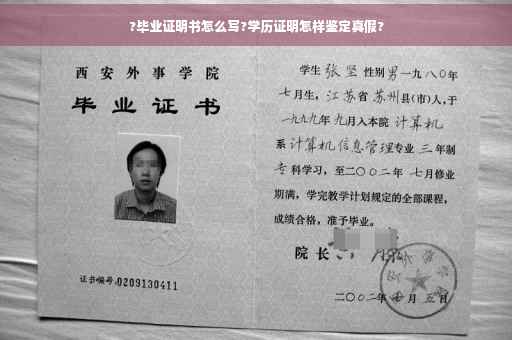 ?毕业证明书怎么写?学历证明怎样鉴定真假?
西安外事学院
毕业证书
证书编号:0209130411
学生 张坚 性别 男 一九八〇年
七月生，江苏省 苏州县(市)人，于
一九九九年 九月入本院 计算机
系 计算机信息管理专业 三 年制
专科学习，至二〇〇二年 七月修业
期满，学完教学计划规定的全部课程，
成绩合格，准予毕业。
院长
二〇〇二年 月 五日